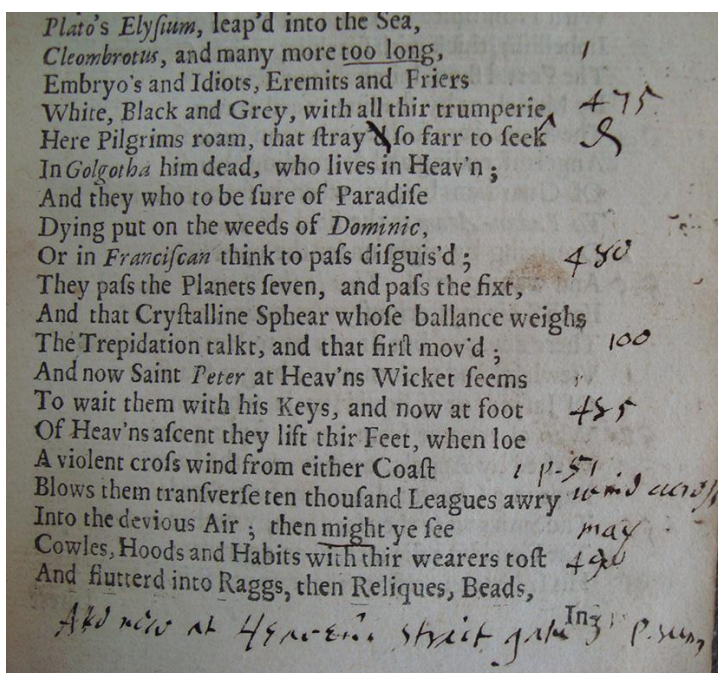 Plato's Elyſium, leap'd into the Sea,
Cleombrotus, and many more too long, 1
Embryo's and Idiots, Eremits and Friers
White, Black and Grey, with all thir trumperie, 475
Here Pilgrims roam, that ſtray & ſo farr to ſeek
In Golgotha him dead, who lives in Heav'n;
And they who to be ſure of Paradiſe
Dying put on the weeds of Dominic,
Or in Franciſcan think to paſs diſguis'd; 480
They paſs the Planets ſeven, and paſs the fixt,
And that Cryſtalline Sphear whoſe ballance weighs
The Trepidation talkt, and that firſt mov'd; 100
And now Saint Peter at Heav'ns Wicket ſeems
To wait them with his Keys, and now at foot 485
Of Heav'ns aſcent they lift thir Feet, when loe
A violent croſs wind from either Coaſt p. 51
Blows them tranſverſe ten thouſand Leagues awry wind across
Into the devious Air; then might ye ſee may
Cowles, Hoods and Habits with thir wearers toſt 490
And flutterd into Raggs, then Reliques, Beads,
Ing
And now at strait gate